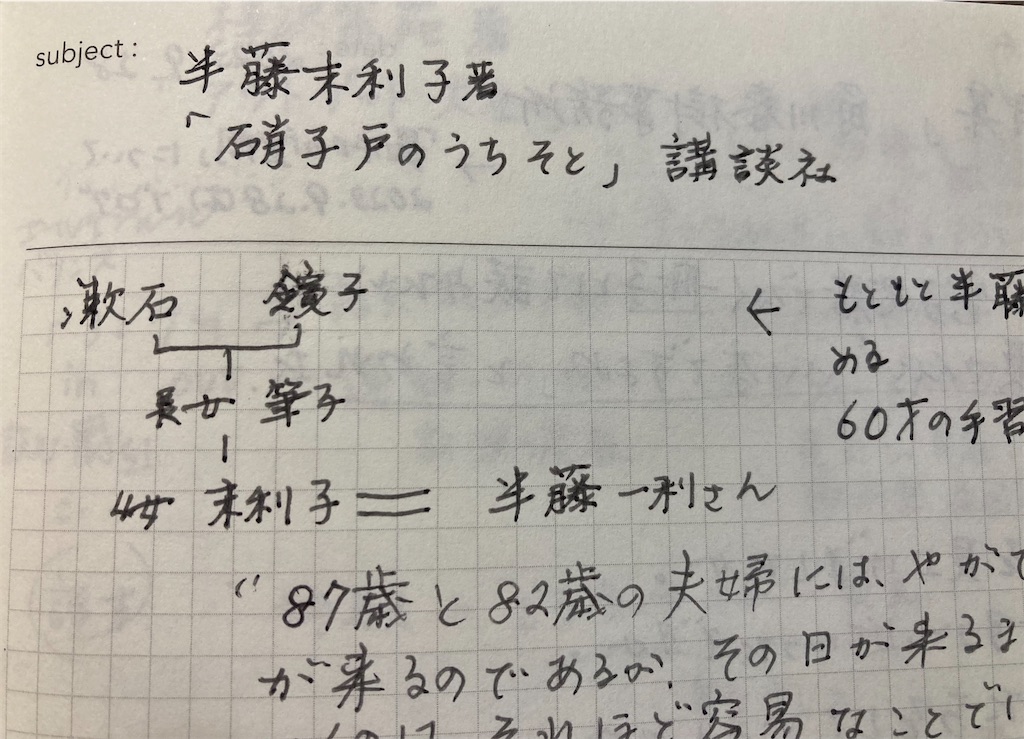 subject :
半藤末利子著
「硝子戸のうちそと」講談社
漱石 鏡子
← もともと半藤
める
長女 筆子
60才の手習
4女 末利子 = 半藤一利さん
“87歳と82歳の夫婦には、やがて
が来るのであるが、その日が来るま
のは、それほど容易なことで